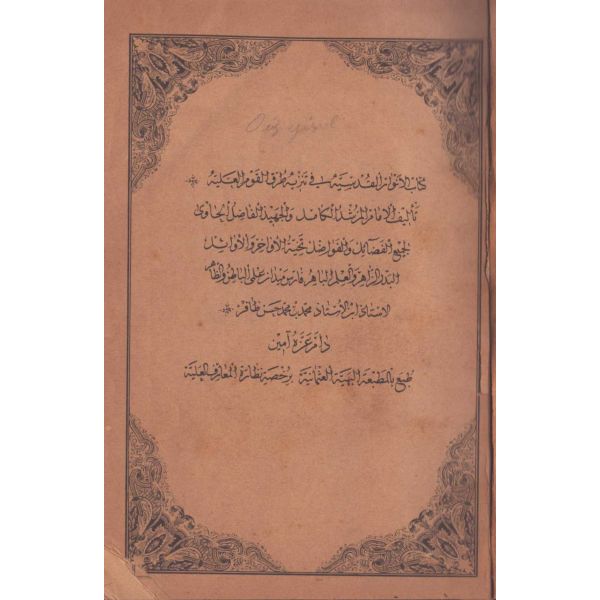 كتاب الانوار القدسيه في تنزيه طرق القوم العليه
تأليف الامام المرشد الكامل والجهبذ الفاضل الحاوى
لجميع الفضائل والفواضل نخبة الأواخر والأوائل
البدر الزاهر والعلم الباهر فارس ميدان على الباطن والظاهر
الاستاذ ابن الاستاذ محمد بن محمد حسن ظافر
دام عزه آمين
طبع بالمطبعة البهية العثمانية برخصة نظارة المعارف العلية